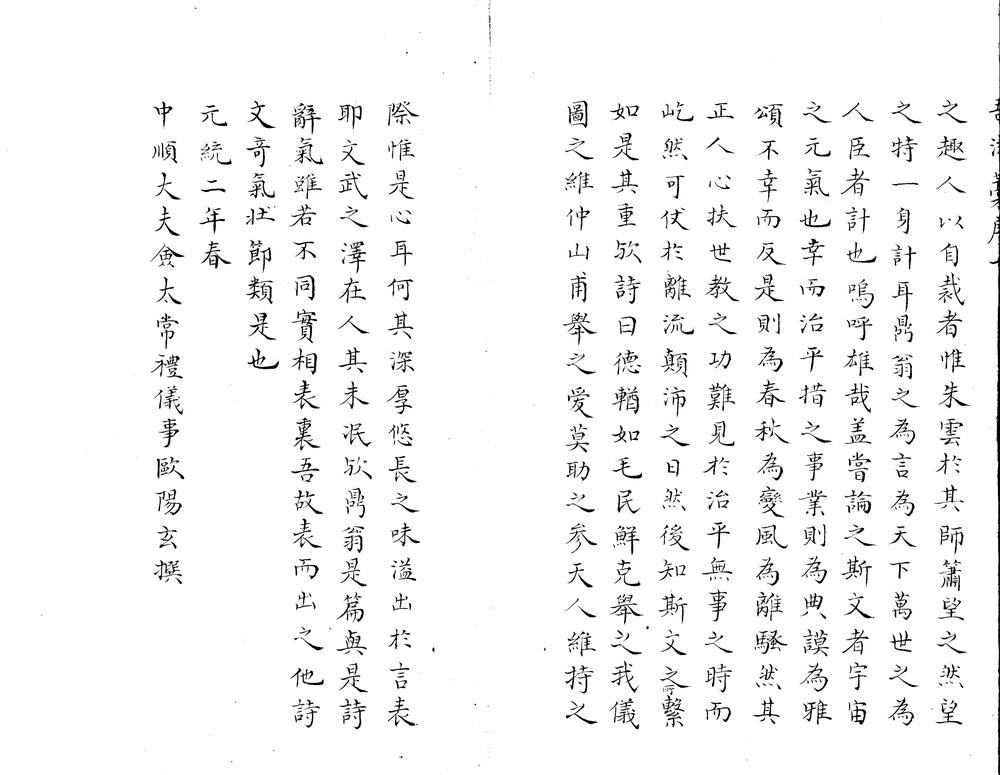 之趣人以自裁者惟朱雲於其師蕭望之然望
之特一身計耳鼎翁之為言為天下萬世之為
人臣者計也嗚呼雄哉盖嘗論之斯文者宇宙
之元氣也幸而治平措之事業則為典謨為雅
頌不幸而反是則為春秋為變風為離騷然其
正人心扶世教之功難見於治平無事之時而
屹然可仗於離流顛沛之日然後知斯文之所繫
如是其重欤詩曰德輶如毛民鮮克舉之我儀
圖之維仲山甫舉之爱莫助之参天人維持之
際惟是心耳何其深厚悠長之味溢出於言表
耶文武之澤在人其未泯欤鼎翁是篇與是詩
辭氣雖若不同實相表裏吾故表而出之他詩
文竒氣壯節類是也
元統二年春
中順大夫僉太常禮儀事歐陽玄撰